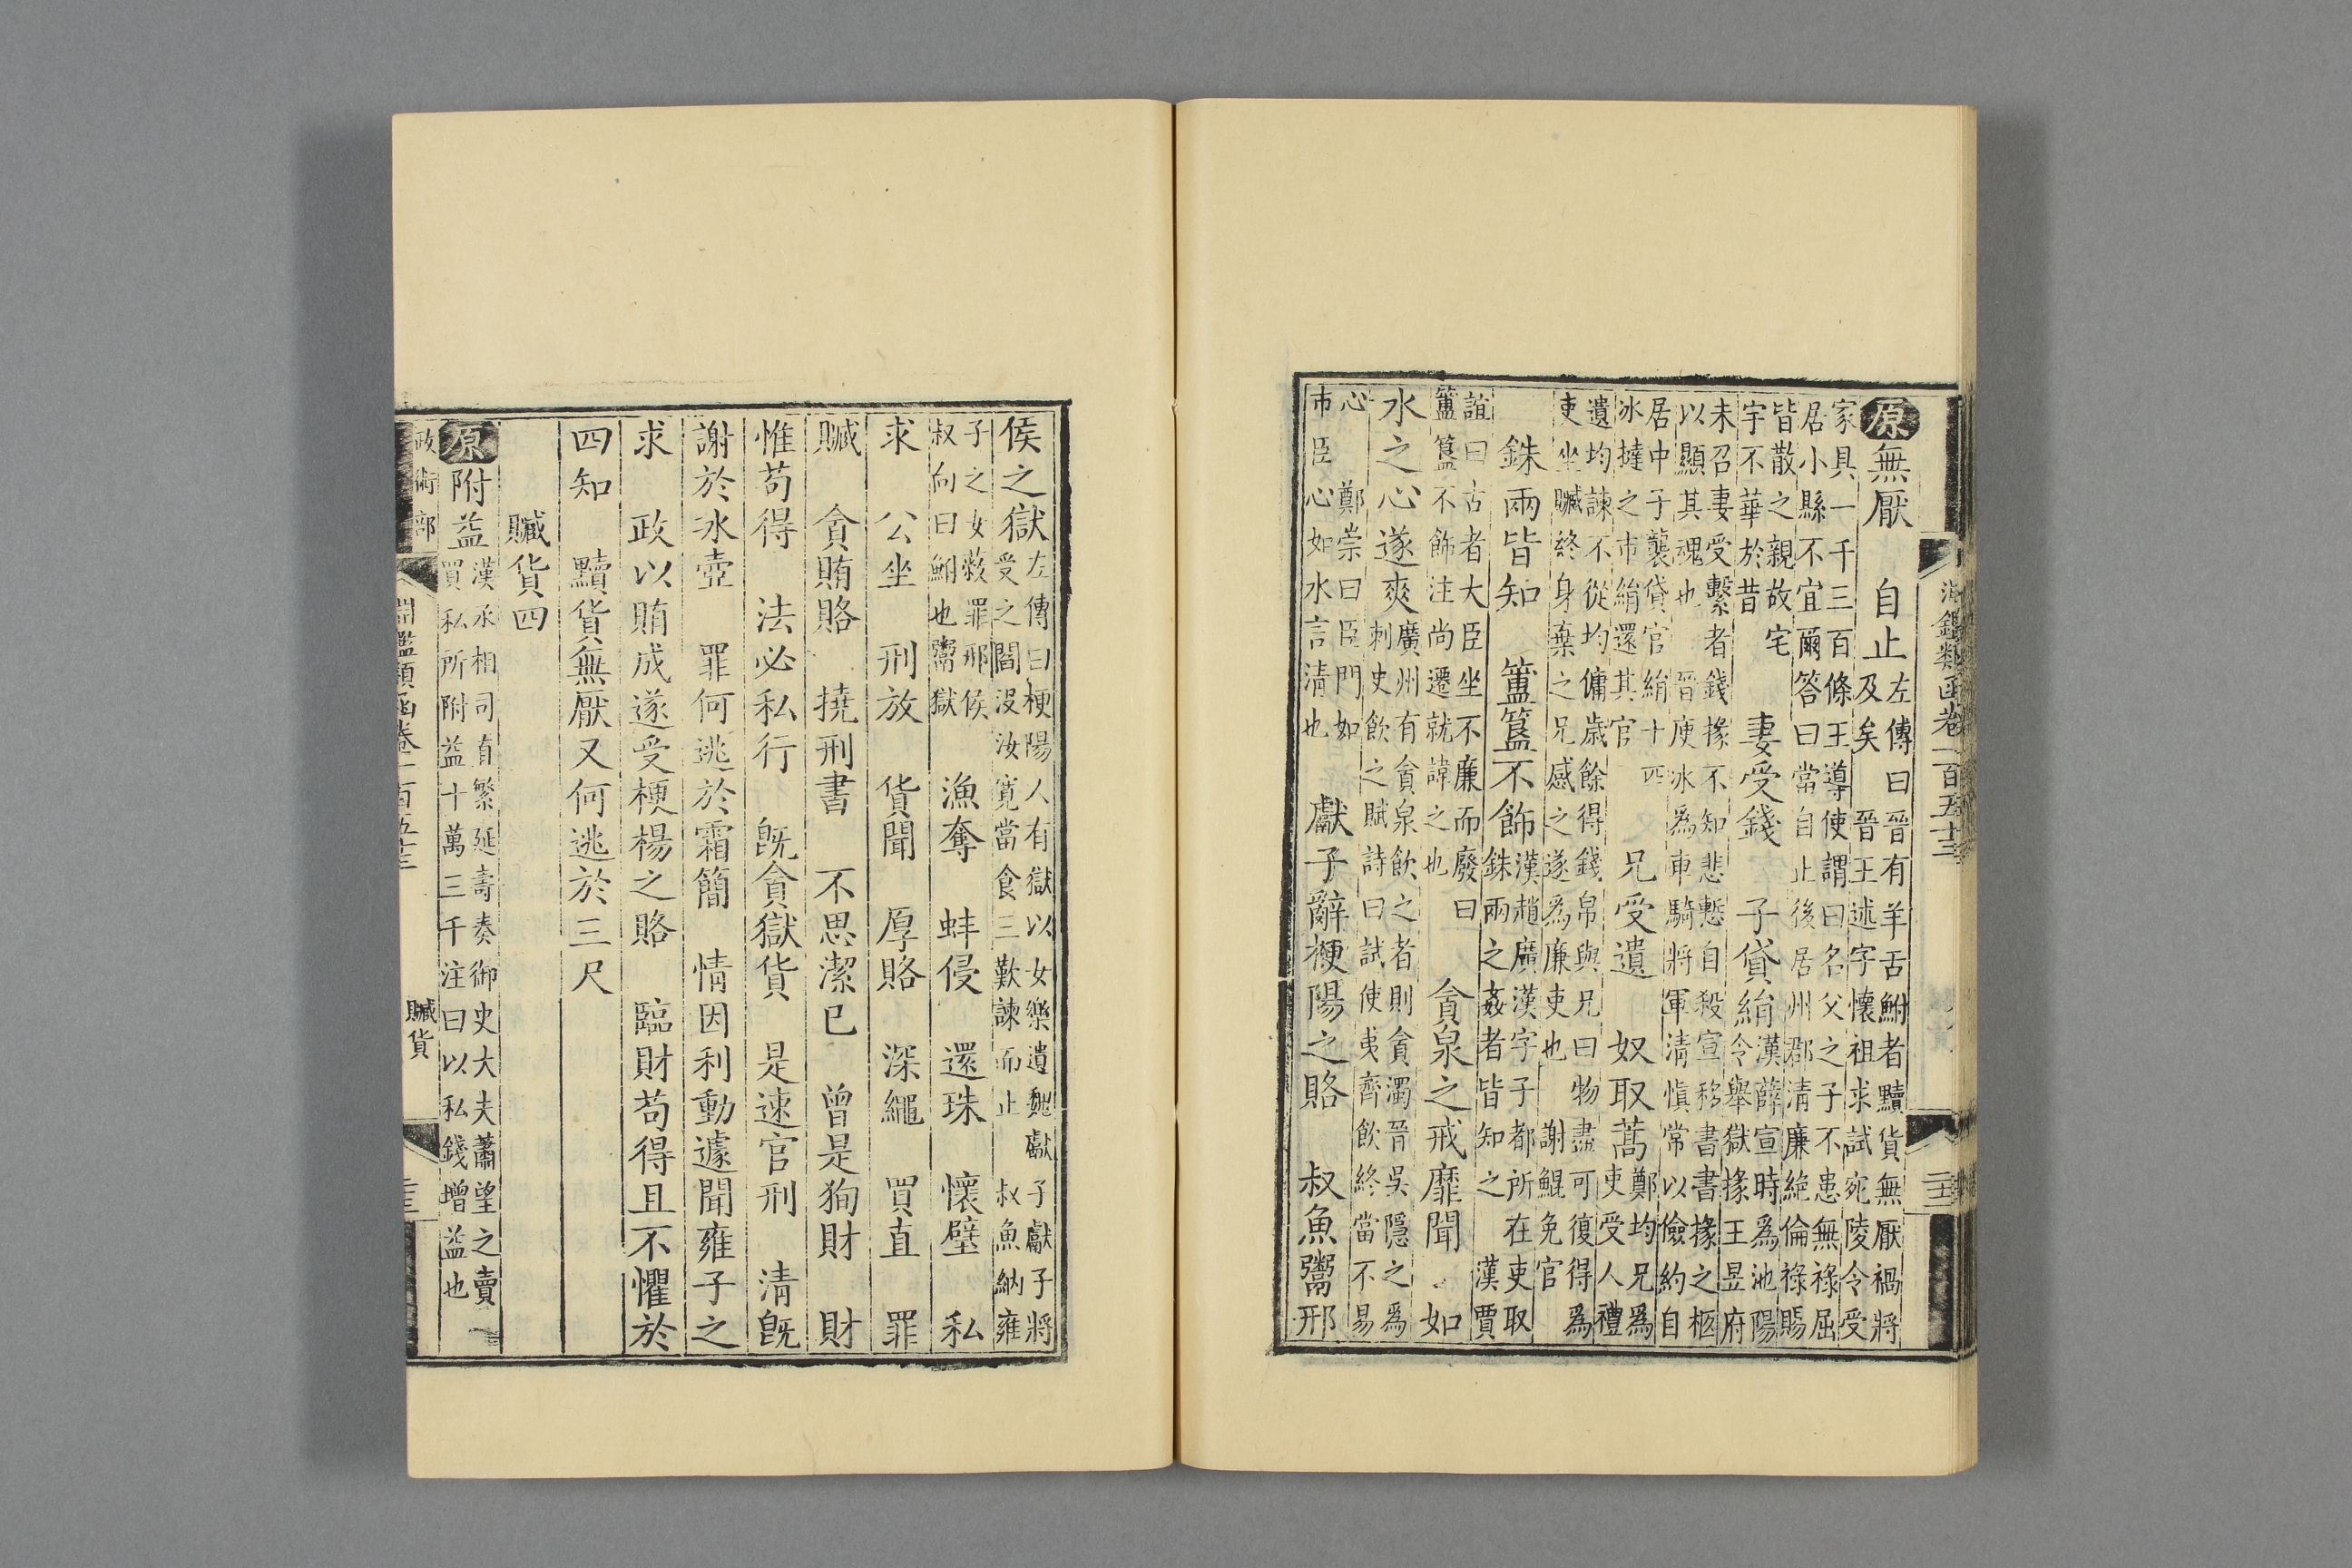 鑑類函卷一百五十三
原無厭 自止左傳曰晉有羊舌鮒者黷貨無厭禍將
及矣 晉王述字懷祖求試宛陵令受
家具一千三百條王導使謂曰名父之子不患無祿屈
居小縣不宜爾答曰當自止後居州郡清廉絶倫祿賜
皆散之親故宅
宇不華於昔 妻受錢 子貸絹漢薛宣時爲池陽
令舉獄掾王昱府
未召妻受繫者錢掾不知悲慙自殺宣移書書掾之柩
以顯其魂也 晉庾冰爲車騎將軍清慎常以儉約自
居中子襲貸官絹十匹
冰撻之市絹還其官 兄受遺 奴取蒿鄭均兄爲
吏受人禮
遺均諫不從均傭歳餘得錢帛與兄曰物盡可復得爲
吏坐贓終身棄之兄感之遂爲廉吏也 謝鯤免官
銖兩皆知 簠簋不飾漢趙廣漢字子都所在吏取
銖兩之姦者皆知之 漢賈
誼曰古者大臣坐不廉而廢曰
簠簋不飾注尚遷就諱之也 貪泉之戒靡聞 如
水之心遂爽廣州有貪泉飲之者則貪濁晉吳隱之爲
刺史飲之賦詩曰試使夷齊飲終當不易
心 鄭崇曰臣門如
市臣心如水言清也 獻子辭梗陽之賂 叔魚鬻邢
侯之獄左傳曰梗陽人有獄以女樂遺魏獻子獻子將
受之閻没汝寛當食三歎諫而止 叔魚納雍
子之女蔽罪邢侯
叔向曰鮒也鬻獄 漁奪 蚌侵 還珠 懷璧 私
求 公坐 刑放 貨聞 厚賂 深繩 買直 罪
贓 貪賄賂 撓刑書 不思潔已 曾是狥財 財
惟苟得 法必私行 旣貪獄貨 是速官刑 清旣
謝於冰壺 罪何逃於霜簡 情因利動遽聞雍子之
求 政以賄成遂受梗楊之賂 臨財苟得且不懼於
四知 黷貨無厭又何逃於三尺
贓貨四
原附益漢丞相司直繁延壽奏御史大夫蕭望之賣
買私所附益十萬三千注曰以私錢增益也
政術部 淵鑑類函卷一百五十三 贓貨